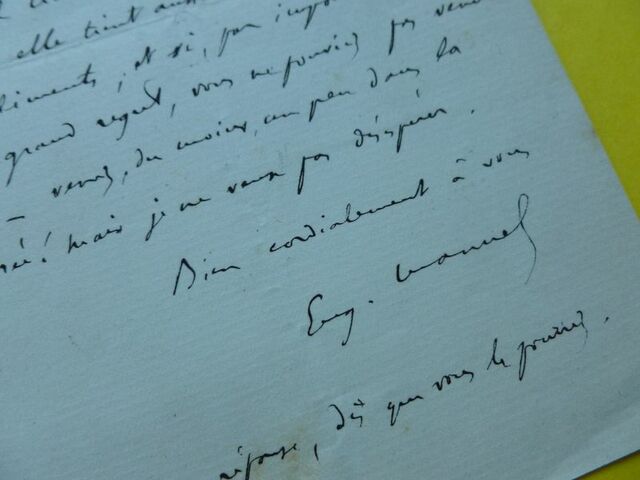 elle tient aussi
liments ; et si, par impos
grand regret, vous ne pouviez pas venir
– venez, du moins, un peu dans la
rée ! mais je ne veux pas désespérer.
Bien cordialement à vous
Eug. Manuel
réponse, dès que vous le pourrez.